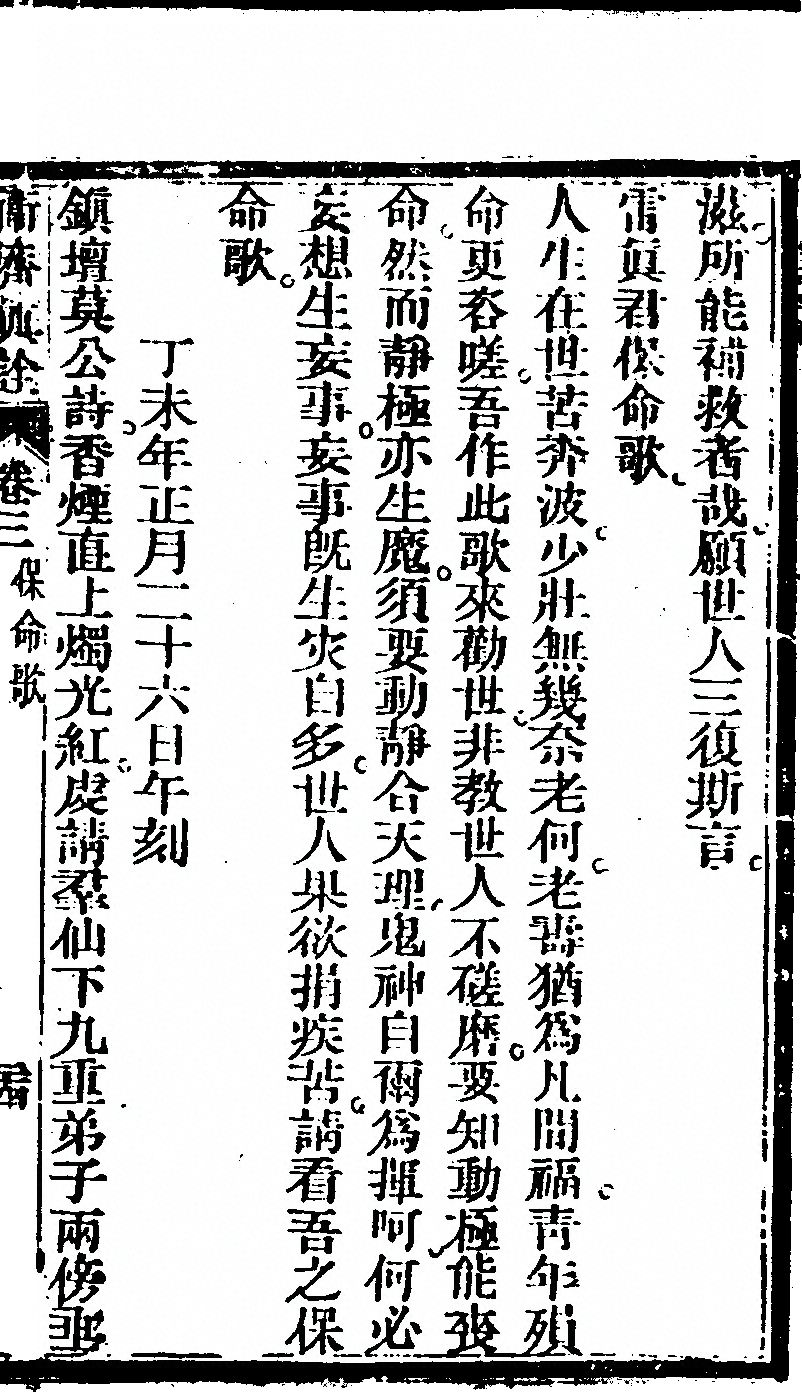 滋所能補救者哉願世人三復斯言
雷真君保命歌
人生在世苦奔波少壯無幾奈老何老壽猶為凡間福青年殞
命更咨嗟吾作此歌來勸世非教世人不磋磨要知動極能喪
命然而靜極亦生魔須要動靜合天理鬼神自爾為撝呵何必
妄想生妄事妄事既生災自多世人果欲捐疾苦請看吾之保
命歌
丁未年正月二十六日午刻
鎮壇莫公詩香煙直上燭光紅虔請羣仙下九重弟子兩傍
卷三 保命歌